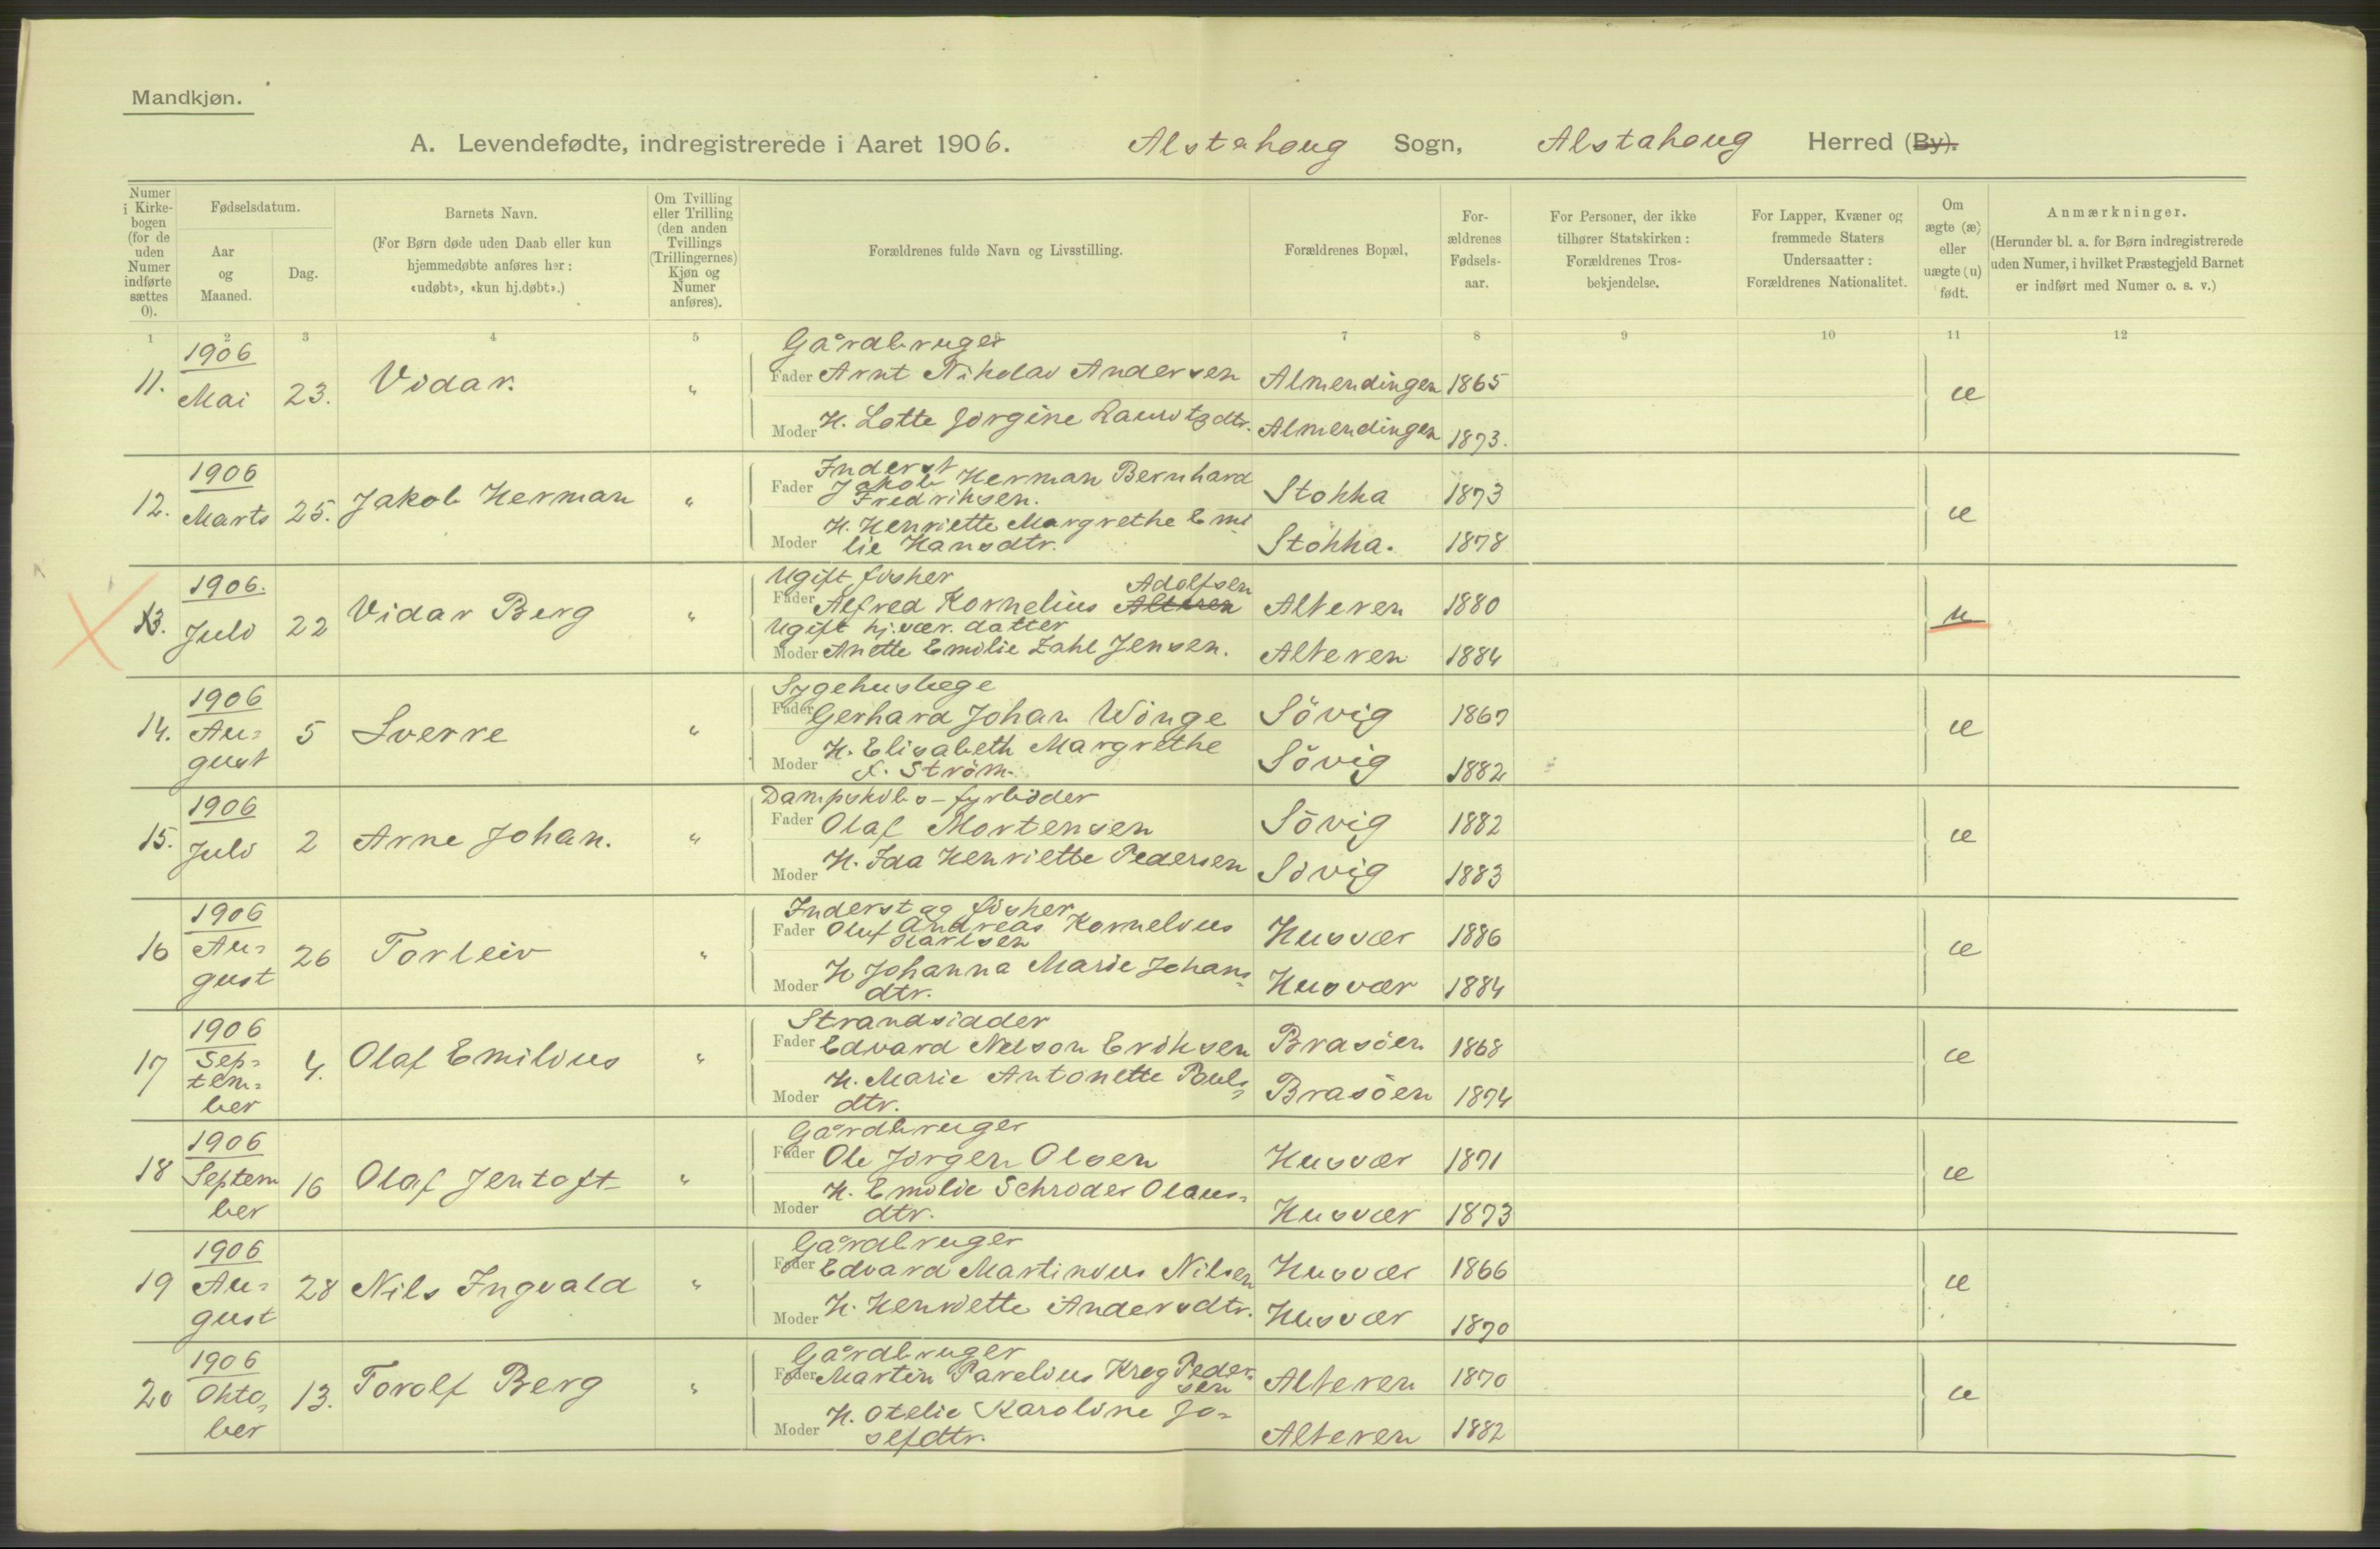 Mandkjøn.
A. Levendefødte, indregistrerede i Aaret 1906. Alstahoug Sogn, Alstahoug Herred (By).
Numer i Kirke-bogen (for de uden Numer indførte sættes 0).
Fødselsdatum.
Aar og Maaned.
Dag.
Barnets Navn.
(For Børn døde uden Daab eller kun hjemmedøbte anføres her: «udøbt», «kun hj.døbt».)
Om Tvilling eller Trilling (den anden Tvillings (Trillingernes) Kjøn og Numer anføres).
Forældrenes fulde Navn og Livsstilling.
Forældrenes Bopæl,
For-ældrenes Fødsels-aar.
For Personer, der ikke tilhører Statskirken: Forældrenes Tros-bekjendelse.
For Lapper, Kvæner og fremmede Staters Undersaatter: Forældrenes Nationalitet.
Om ægte (æ) eller uægte (u) født.
Anmærkninger.
(Herunder bl. a. for Børn indregistrerede uden Numer, i hvilket Præstegjeld Barnet er indført med Numer o. s. v.)
1 2 3 4 5 7 8 9 10 11 12
1906
Gårdbruger
11. Mai 23. Vidar. " Fader Arnt Nikolai Andersen Almendingen 1865 æ
Moder H. Lotte Jorgine Lauritzdtr. Almendingen 1873.
1906
Inderst
12. Marts 25. Jakob Herman " Fader Jakob Herman Bernhard Fredriksen. Stokka 1873 æ
Moder H. Henriette Margrethe Emilie Hansdtr. Stokka. 1878
1906.
Ugift fisker
13. Juli 22 Vidar Berg " Fader Alfred Kornelius Alteren Adolfsen Alteren 1880 u
Ugift hj.vær. datter
Moder Anette Emilie Zahl Jensen. Alteren 1884
1906
Sygehuslæge
14. Au=gust 5 Sverre " Fader Gerhard Johan Winge Søvig 1867 æ
Moder H. Elisabeth Margrethe f. Strøm. Søvig 1882
1906
Dampskibs-fyrbøder
15. Juli 2 Arne Johan. " Fader Olaf Mortensen Søvig 1882 æ
Moder H. Ida Henriette Pedersen Søvig 1883
1906
Inderst og fisker
16 Au=gust 26 Torleiv " Fader Oluf Andreas Kornelius Karlsen Husvær 1886 æ
Moder H Johanna Marie Johans=dtr. Husvær 1884
1906
Strandsidder
17 Sep=tem=ber 4. Olaf Emilius " Fader Edvard Nelson Eriksen Brasøen 1868 æ
Moder H. Marie Antonette Pouls=dtr. Brasøen 1874
1906
Gårdbruger
18 September 16 Olaf Jentoft " Fader Ole Jørgen Olsen Husvær 1871 æ
Moder H. Emilie Schrøder Olaus=dtr. Husvær 1873
1906
Gårdbruger
19 Au=gust 28 Nils Ingvald " Fader Edvard Martinus Nilsen Husvær 1866 æ
Moder H. Henriette Andersdtr. Husvær 1870
1906
Gårdbruger
20 Okto=ber 13. Torolf Berg " Fader Martin Parelius Krog Pedersen Alteren 1870 æ
Moder H. Otelie Karoline Jo=sefdtr. Alteren 1882